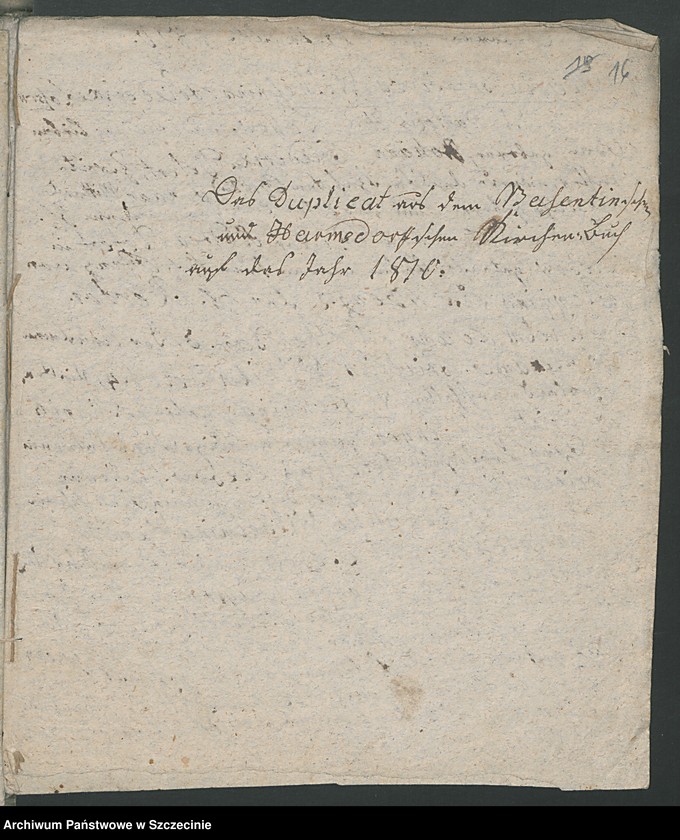 16
Das Duplicat aus dem Basentinschen
und Harmsdorffschen Kirchen-Buch
auf das Jahr 1810.
Archiwum Państwowe w Szczecinie